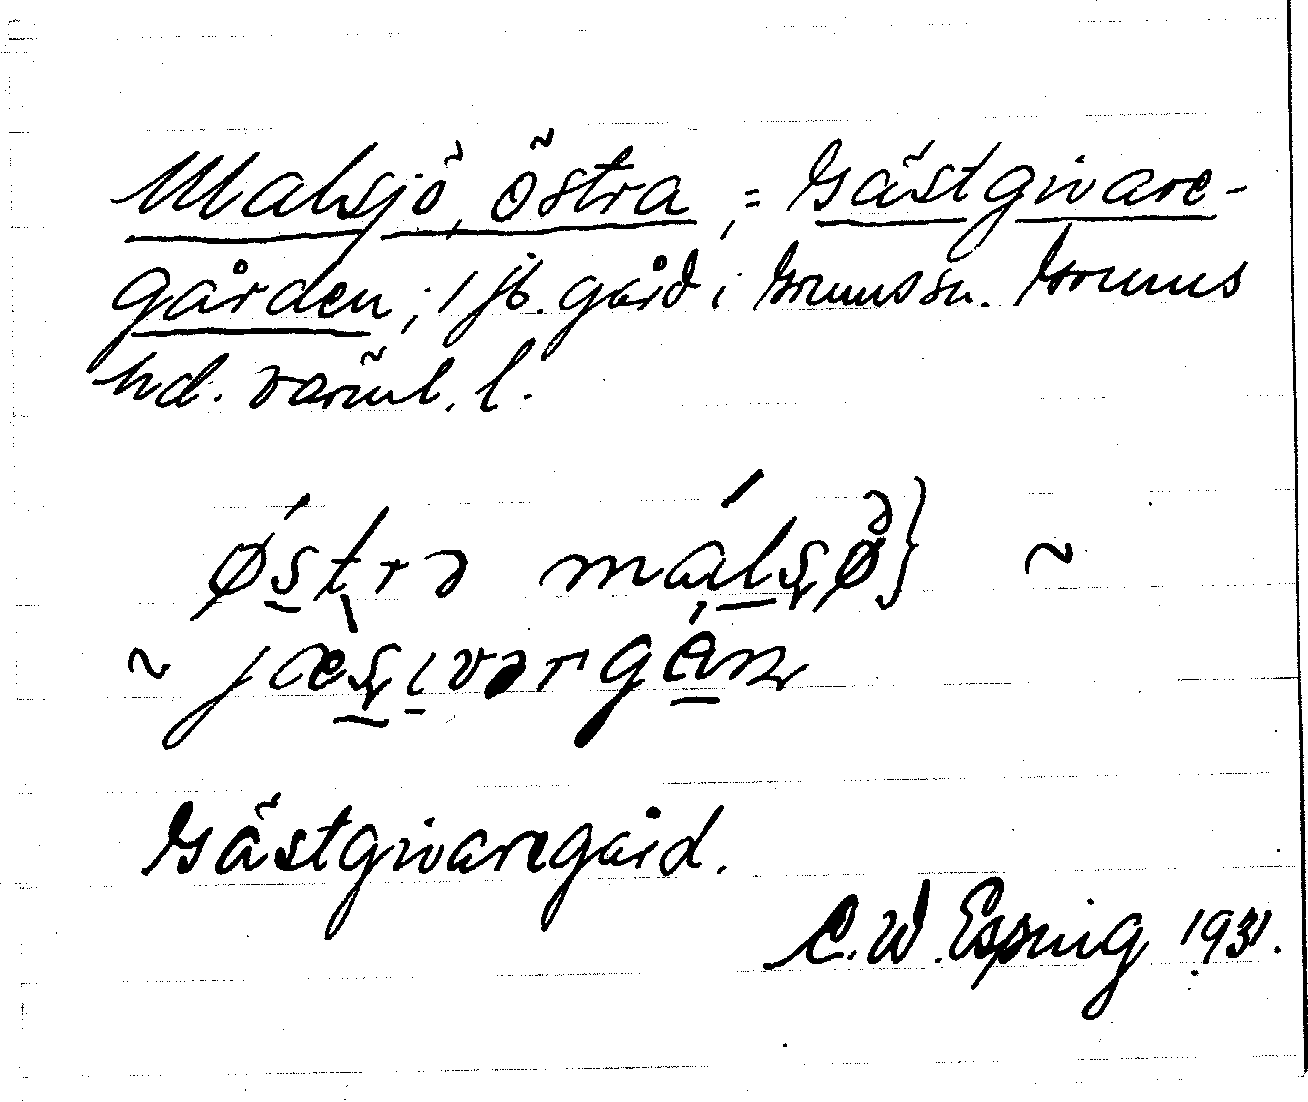 Malsjö, östra, = Gästgivare-
gården; 1 jb. gård i Grums sn. Grums
hd. Värml. l.
ǿstrə málsø̀ə} ~
~ jæ̀sivərgán
Gästgivaregård.
C. W. Esping 1931.